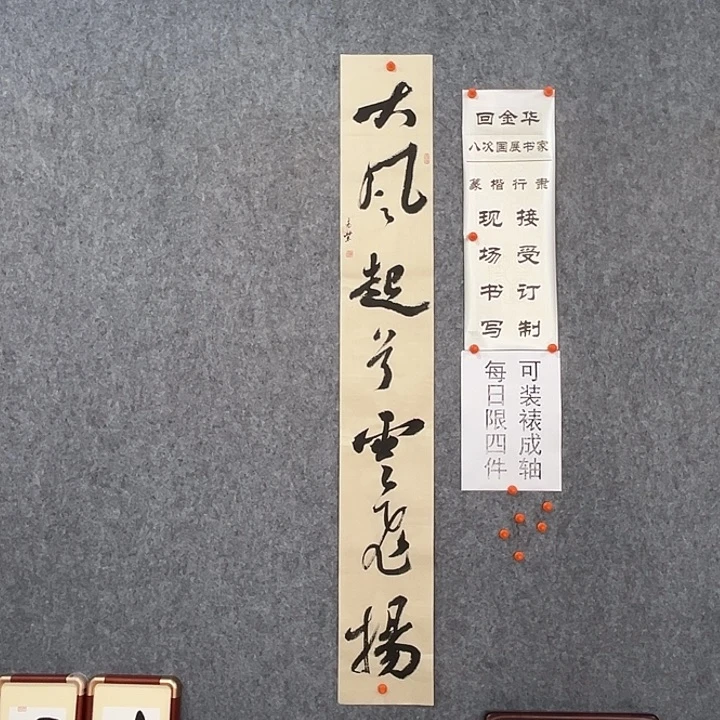 大风起兮雲飛揚
回金华
八次国展书家
篆楷行隶
接受订制
现场书写
可装裱成轴
每日限四件